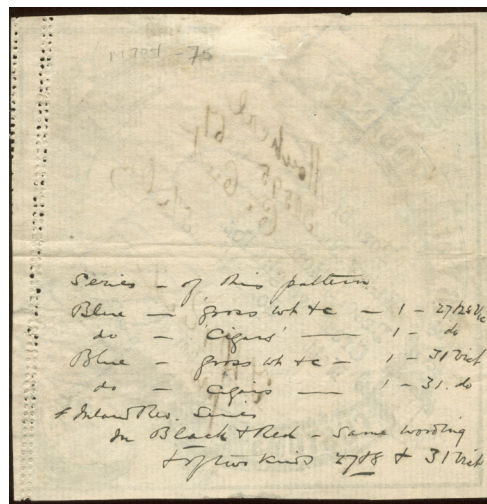 Series - of this pattern
Blue - gross wh &c - 1 - 27/28 Vic
do - 'Cigars' - 1 - do
Blue - gross wh &c - 1 - 31 Vict
do - 'Cigars - 1 - 31. do
Inland Rev. Series
In Black & Red - Same wording
& of two kinds 27/8 & 31 Vict